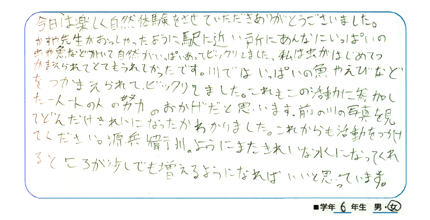 今日は楽しく自然体験をさせていただきありがとうございました。
かすや先生がおっしゃったように駅に近い所にあんなにいっぱいの
虫や魚などがいて自然がいっぱいあってビックリしました。私は虫がはじめてつ
かまえられてとてもうれしかったです。川ではいっぱいの魚やえびなど
をつかまえられて、ビックリしてました。これもこの活動に参加し
た一人一人の人の努力のおかげだと思います。前の川の写真を見
てどんだけきれいになったかわかりました。これからも活動をつづけ
てください。源兵衛川のようにまたきれいな水になってくれ
るところが少しでも増えるようになればいいと思っています。
■学年 6 年生 男・女